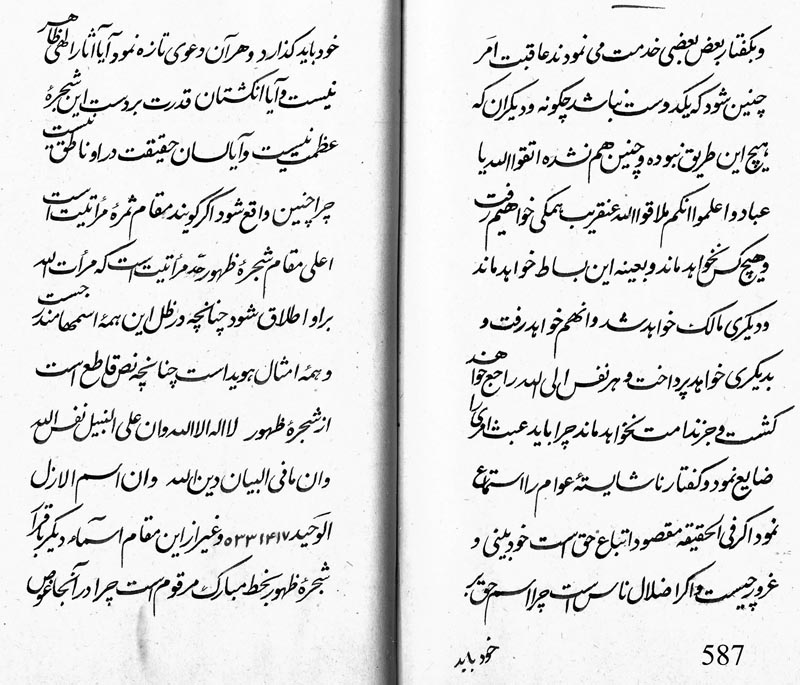 و بگفتار بعض بعضی خدمت می نمودند عاقبت امر
چنین شود که یکدوست نباشد چگونه و دیگران که
هیچ این طریق نبوده و چنین هم نشده اتقوا الله یا
عباد و اعلموا انکم ملاقوا الله عنقریب همگی خواهیم رفت
و هیچ کس نخواهد ماند و بعینه این بساط خواهد ماند
و دیگری مالک خواهد شد و انهم خواهد رفت و
بدیگری خواهد پرداخت و هر نفس الی الله راجع خواهند
گشت و جز ندامت نخواهد ماند چرا باید عبث امری را
ضایع نمود و گفتار ناشایستهٔ عوام را استماع
نمود اگر فی الحقیقه مقصود اتباع حق است خودبینی و
غرور چیست و اگر اضلال ناس است چرا اسم حق بر
خود باید
587
خود باید گذارد و هر آن دعوی تازه نمود آیا آثار الهی ظاهر
نیست و آیا انگشتان قدرت بر دست این شجرهٔ
عظمت نیست و آیا لسان حقیقت در او ناطق نیست
چرا چنین واقع شود اگر گویند مقام ثمرهٔ مرأتیت است
اعلی مقام شجرهٔ ظهور حد مرأتیت است که مرأت الله
بر او اطلاق شود چنانچه در ظل این همهٔ اسمها مندرجست
و همهٔ امثال هویداست چنانچه نص قاطع است
از شجرهٔ ظهور لا اله الا الله و ان علی النبیل نفس الله
و ان ما فی البیان دین الله و ان اسم الازل
الوحید ۵۳۳۱۴۱۷ و غیر از این مقام اسماء دیگر باقرار
شجرهٔ ظهور بخط مبارک مرقوم است چرا در آنجا غوص